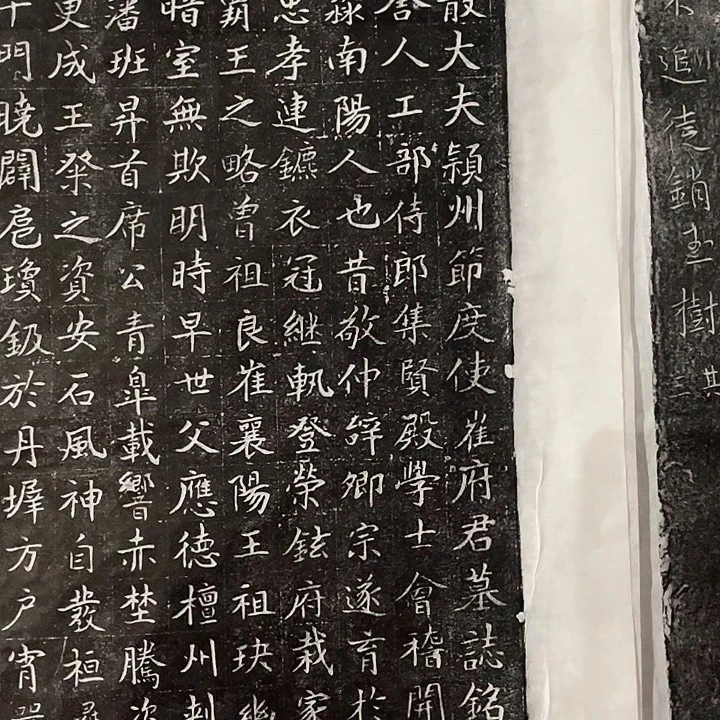 追徒銷玉樹
三
其
散大夫潁州節度使崔府君墓誌銘
舍人工部侍郎集賢殿學士會稽開
南陽人也昔敬仲辞卿宗遂育於
忠孝連鑣衣冠継軌登榮鉉府栽家
霸王之略曽祖良崔襄陽王祖玦
暗室無欺明時早世父應德檀州刺
潘班昇首席公青臯載響赤埜騰
更成王粲之資安石風神自發桓
門曉闢扈瓊鈒於丹墀方户宵